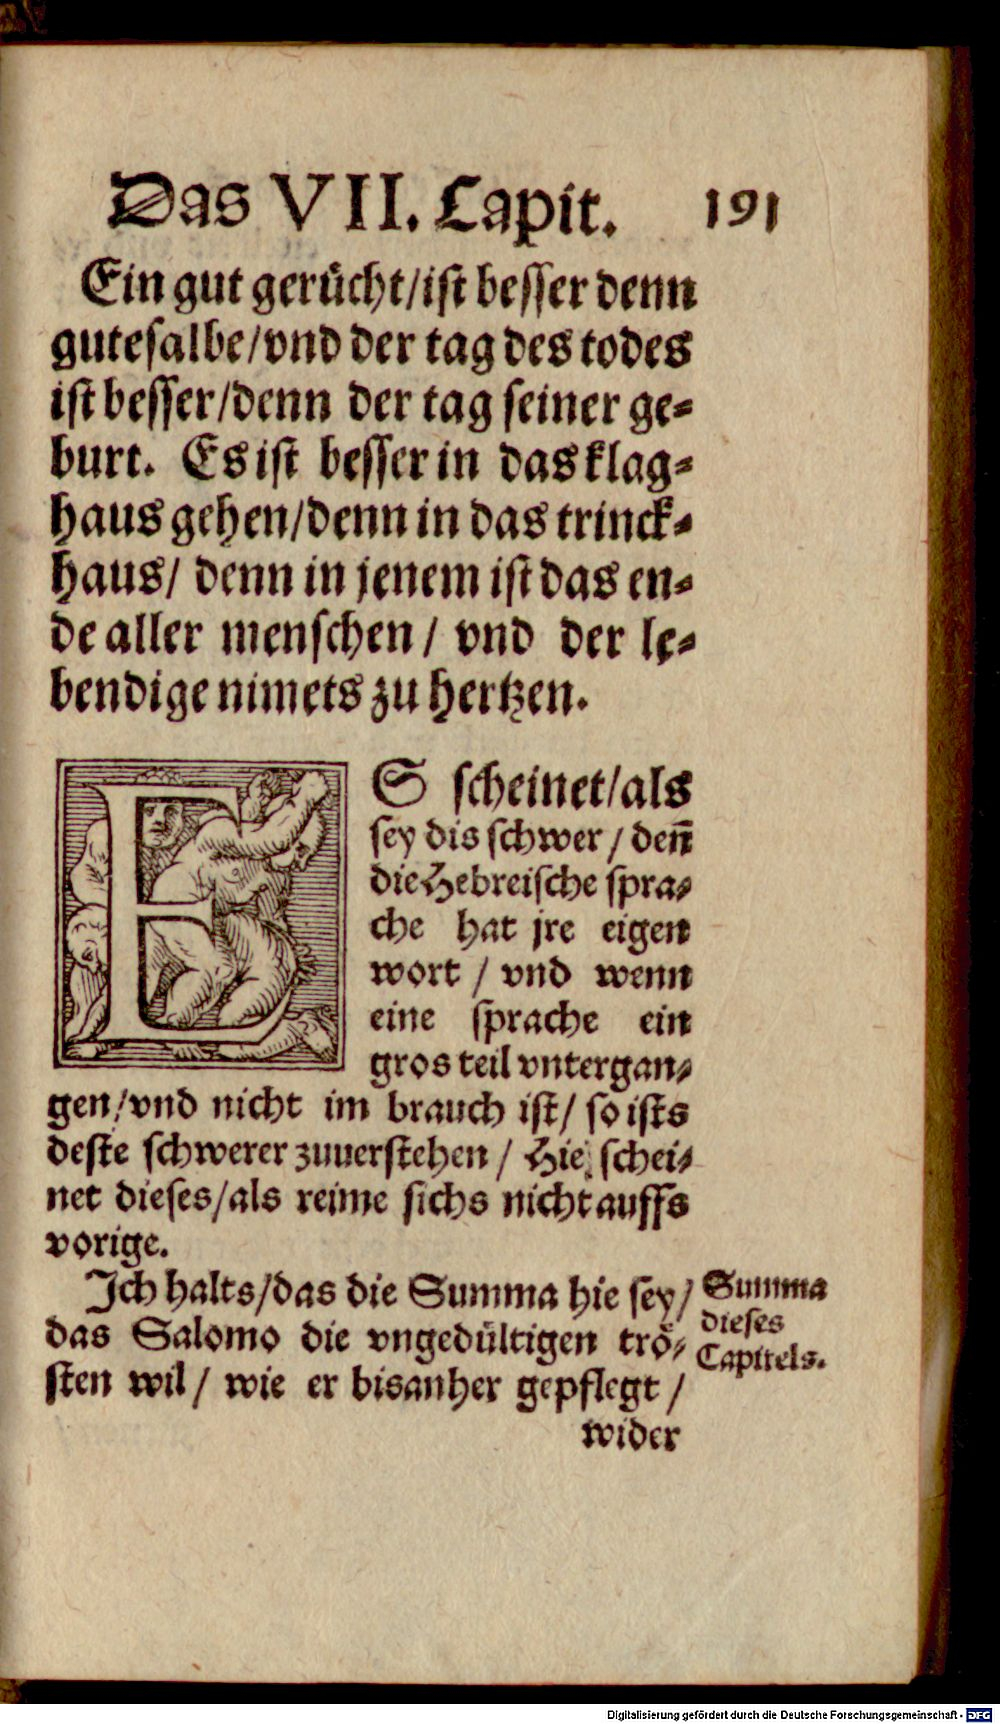 Das VII. Capit. 191
Ein gut gerücht/ist besser denn
gute salbe/vnd der tag des todes
ist besser/denn der tag seiner ge-
burt. Es ist besser in das klag-
haus gehen/denn in das trinck-
haus/ denn in jenem ist das en-
de aller menschen/ vnd der le-
bendige nimets zu hertzen.
ES scheinet/als
sey dis schwer/ den̄
die Hebreische spra-
che hat jre eigen
wort/ vnd wenn
eine sprache ein
gros teil vntergan-
gen/vnd nicht im brauch ist/ so ists
deste schwerer zuuerstehen/ Hie schei-
net dieses/als reime sichs nicht auffs
vorige.
Ich halts/das die Summa hie sey/
das Salomo die vngedültigen trö-
sten wil/ wie er bisanher gepflegt/
wider
Summa
dieses
Capitels.
Digitalisierung gefördert durch die Deutsche Forschungsgemeinschaft - DFG